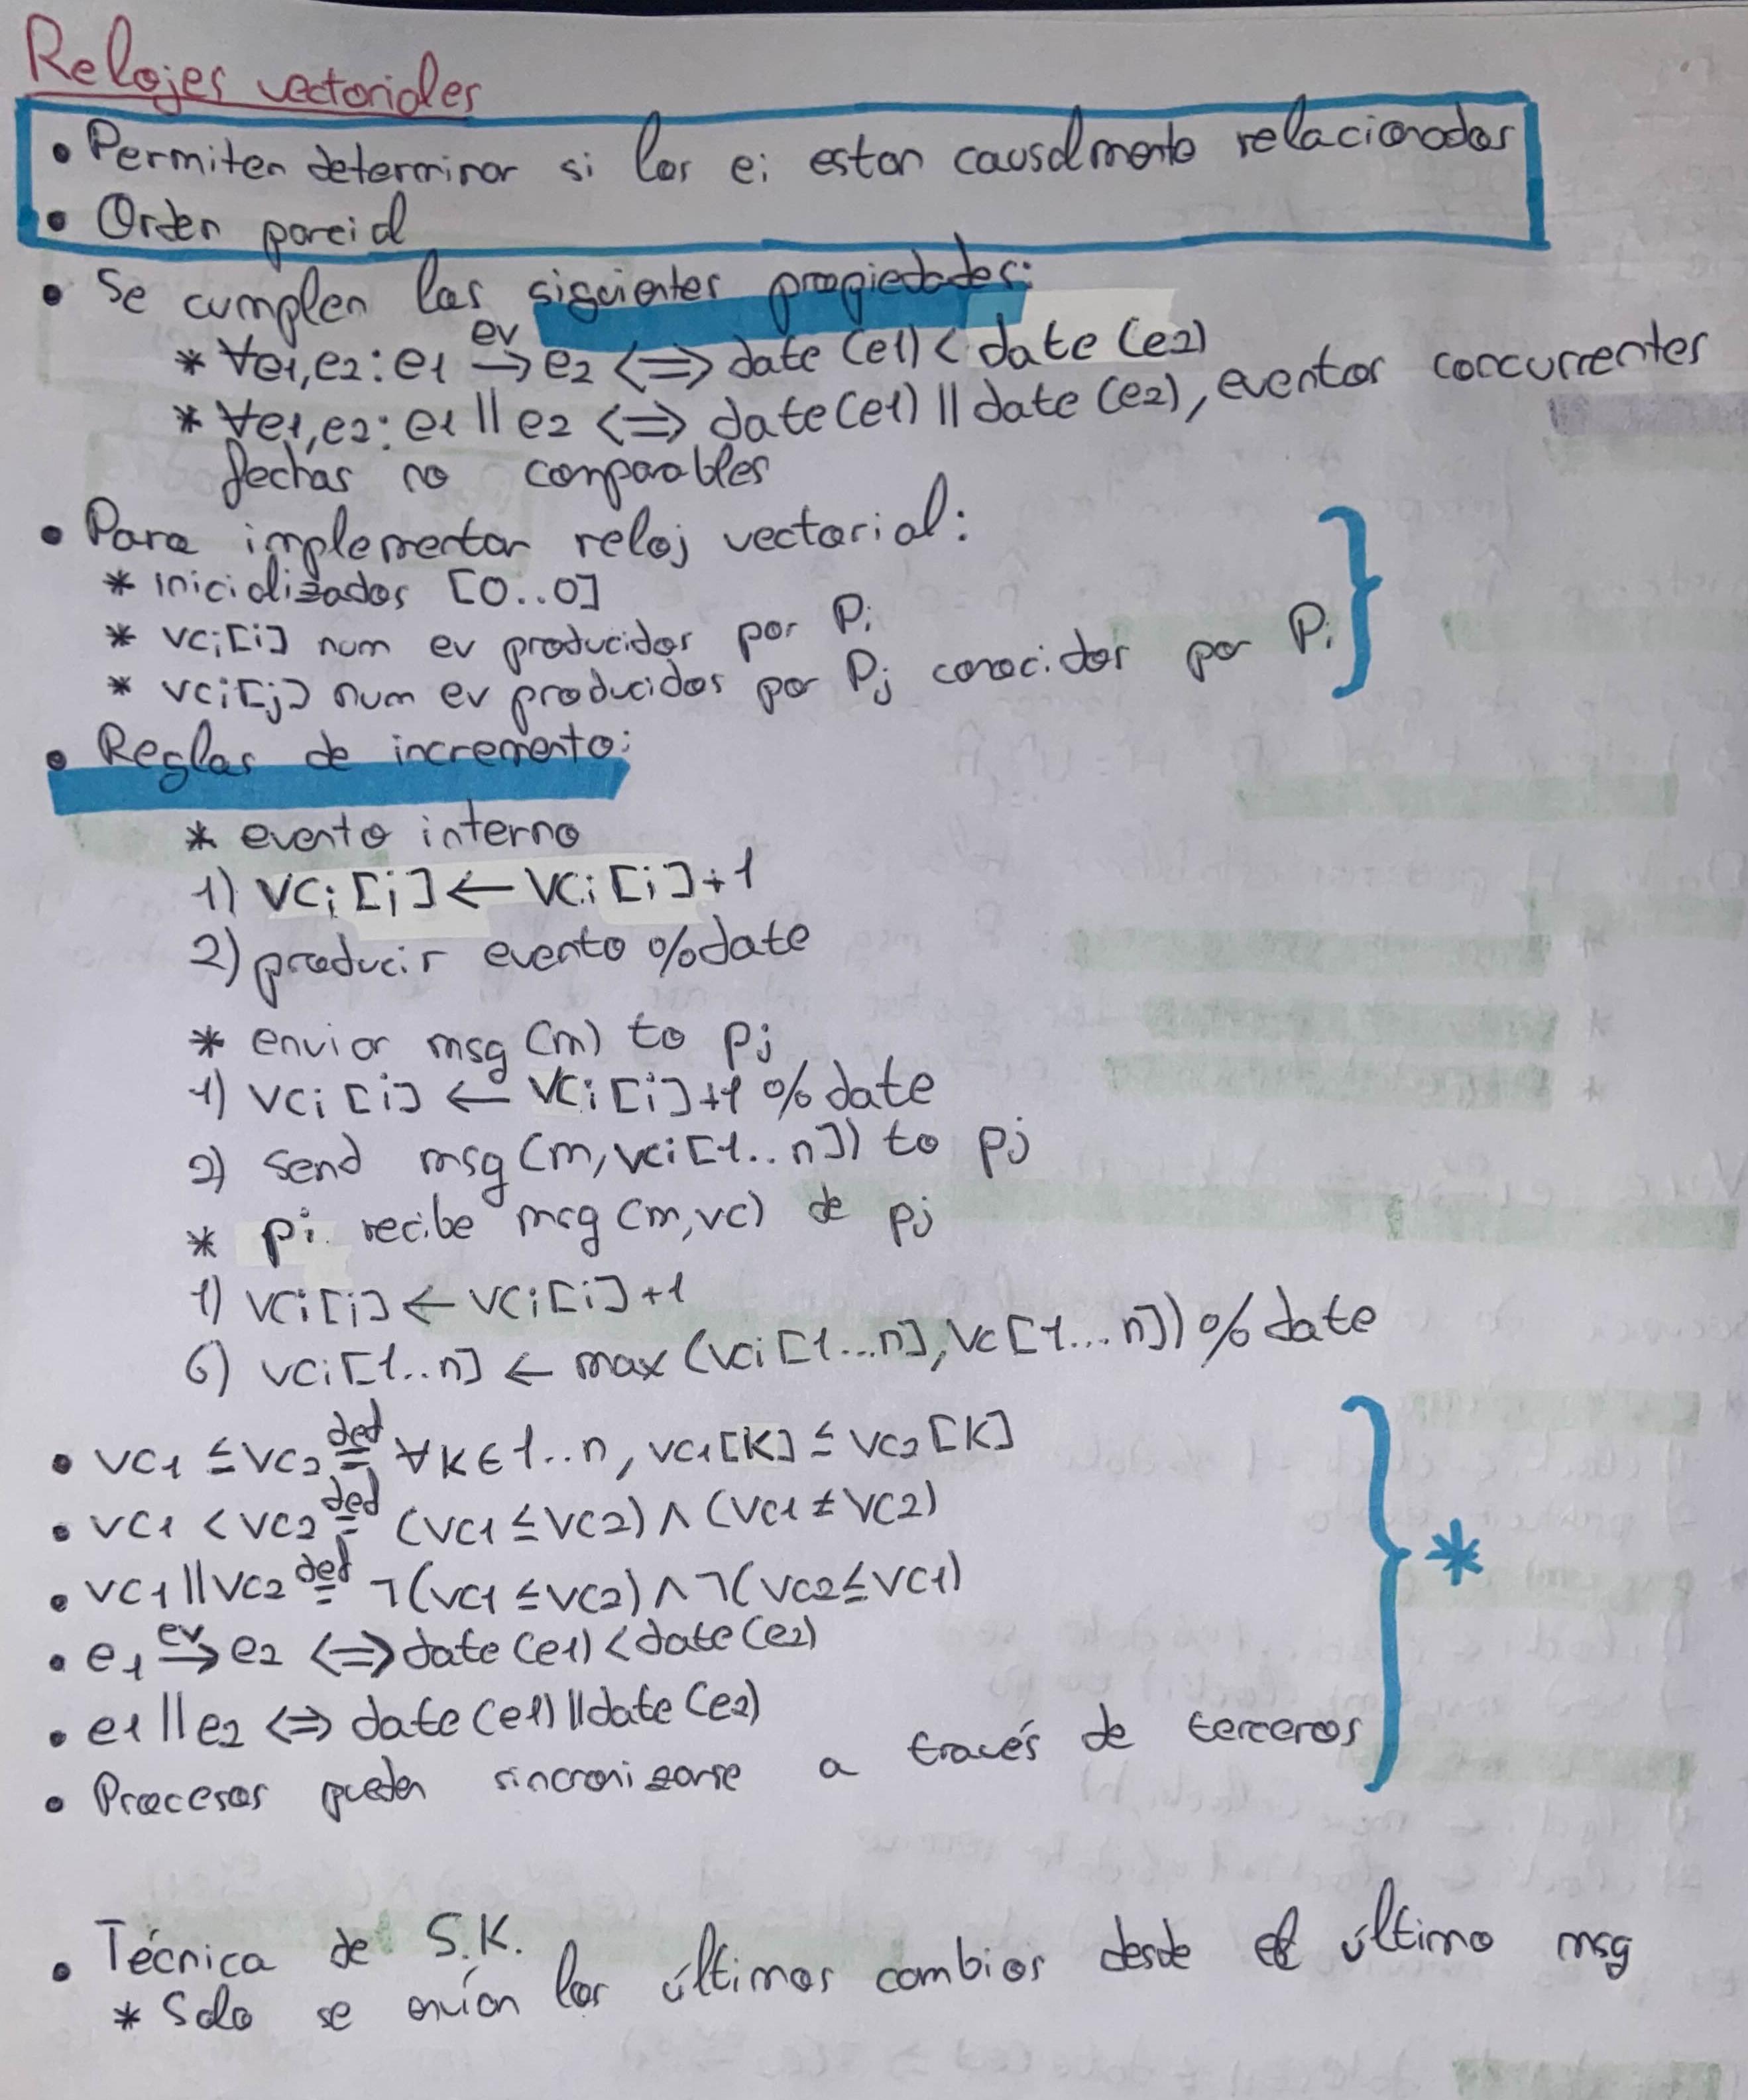 Relojes vectoriales
• Permiten determinar si los ei estan causalmente relacionados
• Orden parcial
• Se cumplen las siguientes propiedades:
* ∀e1,e2: e1 ev→ e2 <=> date (e1) < date (e2)
* ∀e1,e2: e1 || e2 <=> date (e1) || date (e2), eventos concurrentes
fechas no comparables
• Para implementar reloj vectorial:
* inicializados [0..0]
* vci[i] num ev producidos por Pi
* vci[j] num ev producidos por Pj conocidos por Pi
• Reglas de incremento:
* evento interno
1) VCi[i] ← VCi[i]+1
2) producir evento %date
* enviar msg (m) to pj
1) vci[i] ← vci[i]+1 %date
2) send msg (m, vci[1..n]) to pj
* pi recibe msg (m,vc) de pj
1) vci[i] ← vci[i]+1
6) vci[1..n] ← max (vci[1...n], vc[1...n]) %date
• vc1 ≤ vc2 def= ∀K∈1..n, vc1[K] ≤ vc2[K]
• vc1 < vc2 def= (vc1 ≤ vc2) ∧ (vc1 ≠ vc2)
• vc1 || vc2 def= ¬(vc1 ≤ vc2) ∧ ¬(vc2 ≤ vc1)
• e1 ev→ e2 <=> date (e1) < date (e2)
*
• e1 || e2 <=> date (e1) || date (e2)
• Procesos pueden sincronizarse a través de terceros
• Técnica de S.K.
* Solo se envían los últimos cambios desde el último msg